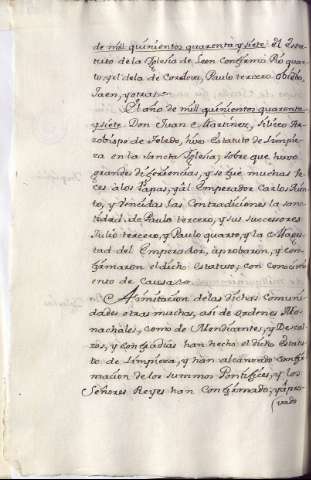 de mill quinientos quarenta y siete. El Esta=
tuto de la Iglesia de Leon Confirmó Pio quar
to, y el de la de Cordova, Paulo tercero. Obiedo,
Jaen, y otras.
El año de mill quinientos quarenta
y siete Don Juan Martinez, Siliceo Ar=
zobispo de Toledo, hizo Estatuto de limpie
za en la sancta Iglesia; sobre que huvo
grandes diferencias, y se fue muchas ve
ces á los Papas, y al Emperador Carlos Quin
to, y vencidas las Contradiciones la sanc
tidad de Paulo tercero, y sus successores
Julio tercero, y Paulo quarto, y la Mages
tad del Emperador, aprobaron, y con
firmaron el dicho Estatuto, con conocimi
ento de Causa.
A imitacion de las dichas Comuni
dades otras muchas, asi de ordenes Mo
nachales, como de Mendicantes, y Descal
zos, y confradias han hecho el dicho Estatu
to de limpieza, y han alcanzado confir
macion de los summos Pontifices, y los
Señores Reyes han Confirmado, y apro
vado